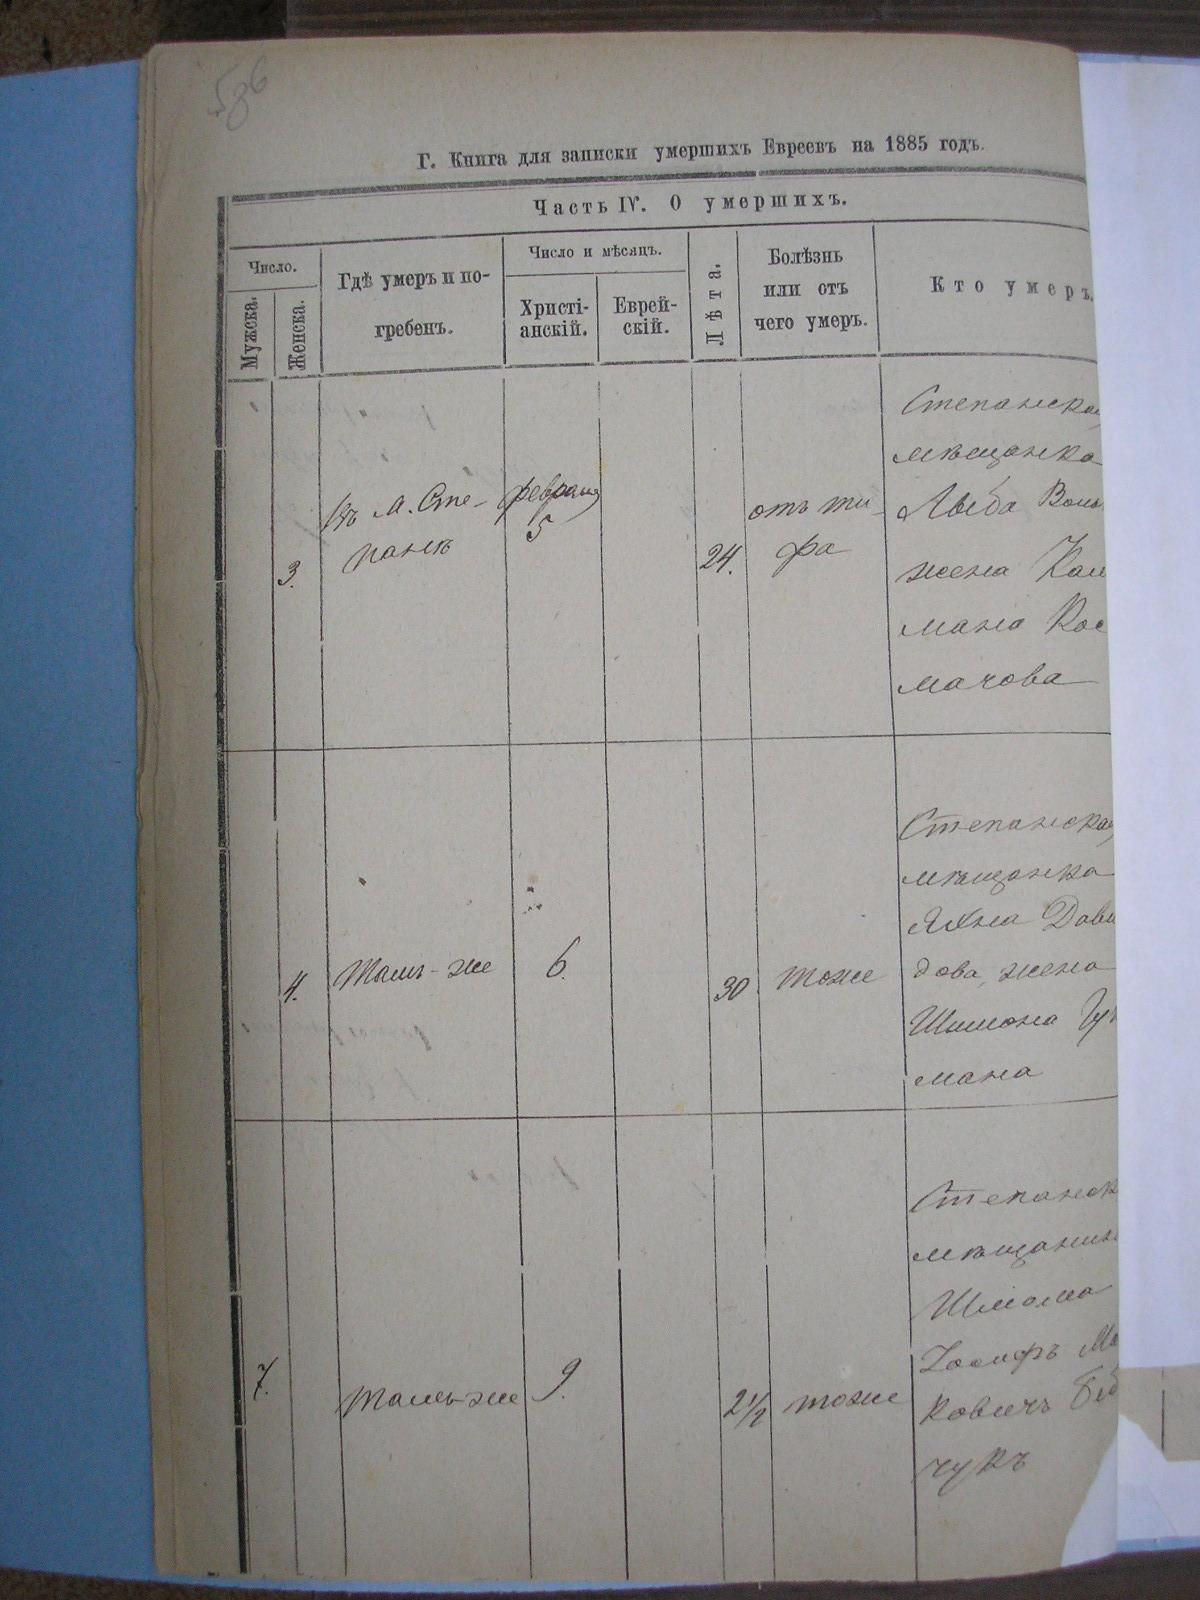 586
Г. Книга для записки умершихъ Евреевъ на 1885 годъ.
Часть IV. О умершихъ.
Число.
Мужска.
Женска.
Гдѣ умеръ и по-
гребенъ.
Число и мѣсяцъ.
Христі-
анскій.
Еврей-
скій.
Лѣта.
Болѣзнь
или отъ
чего умеръ.
Кто умеръ.
3.
въ м. Сте-
панѣ
февраля
5
24.
отъ ти-
фа
Степанская
мѣщанка
жена Каль
мана Кос
мачова
4.
Тамъ-же
6.
30
тоже
Степанская
мѣщанка
Яхна Дави
дова, жена
Шимона Гу
мана
7.
тамъ-же
9.
2 1/2
тоже
Степанск
мѣщанин
Шліома
Іосифъ Мо
ковичъ
чукъ